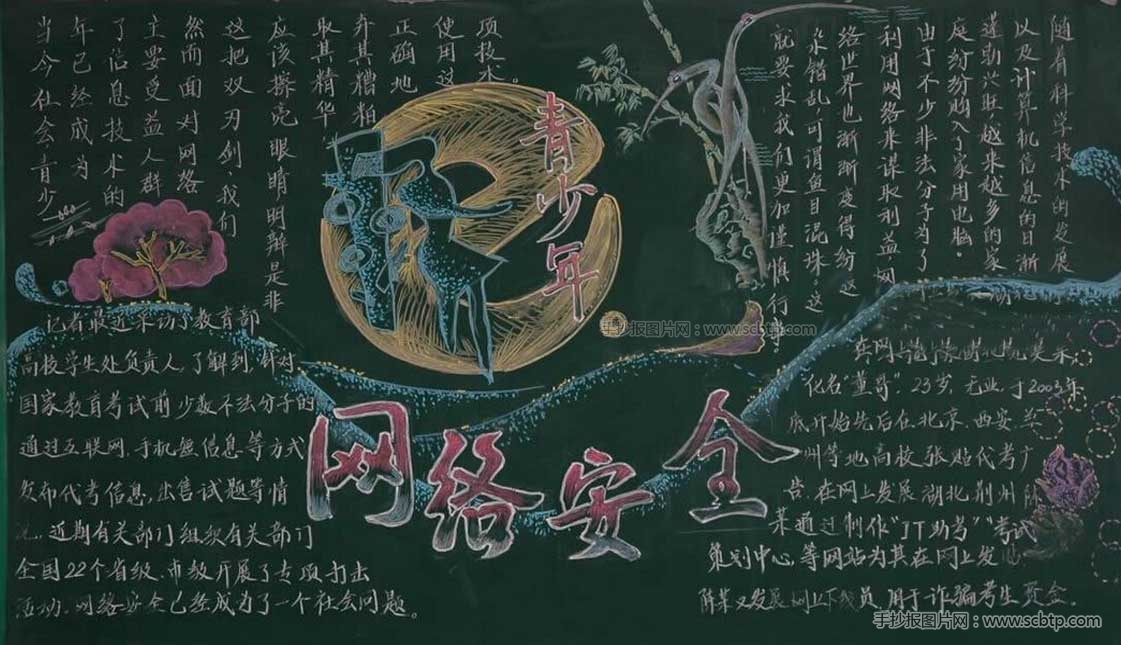 青少年
网络安全
当今社会青少
年已经成为
了信息技术的
主要受益人群
然而面对网络
这把双刃剑,我们
应该擦亮 眼睛明辨是非
取其精华
弃其糟粕
正确地
使用这
项技术。
随着科学技术的发展
以及计算机信息的日渐
蓬勃兴旺 越来越多的家
庭纷纷购入了家用电脑。
由于不少非法分子为了
利用网络来谋取利益,网
络世界也渐渐变得纷
错乱,可谓鱼目混珠。这
就要求我们更加谨慎行事。
记者最近采访教育部
高校学生处负责人,了解到,针对
国家教育考试前少数不法分子的
通过互联网,手机短信息等方式
发布代考信息,出售试题等情
况,近期有关部门组织有关部门
全国22个省级、市教开展了专项打击
活动,网络安全已经成为了一个社会问题。
化名"董哥",23岁,无业,于2003年
底开始先后在北京、西安、兰
州等地高校张贴代考广
告,在网上发展湖北荆州陈
某通过制作"JT助考""考试
策划中心,等网站为其在网上发
陈某又发展网上下线员,用于诈骗考生资金。
手抄报图片网:www.scbtp.com
手抄报图片网:www.scbtp.com